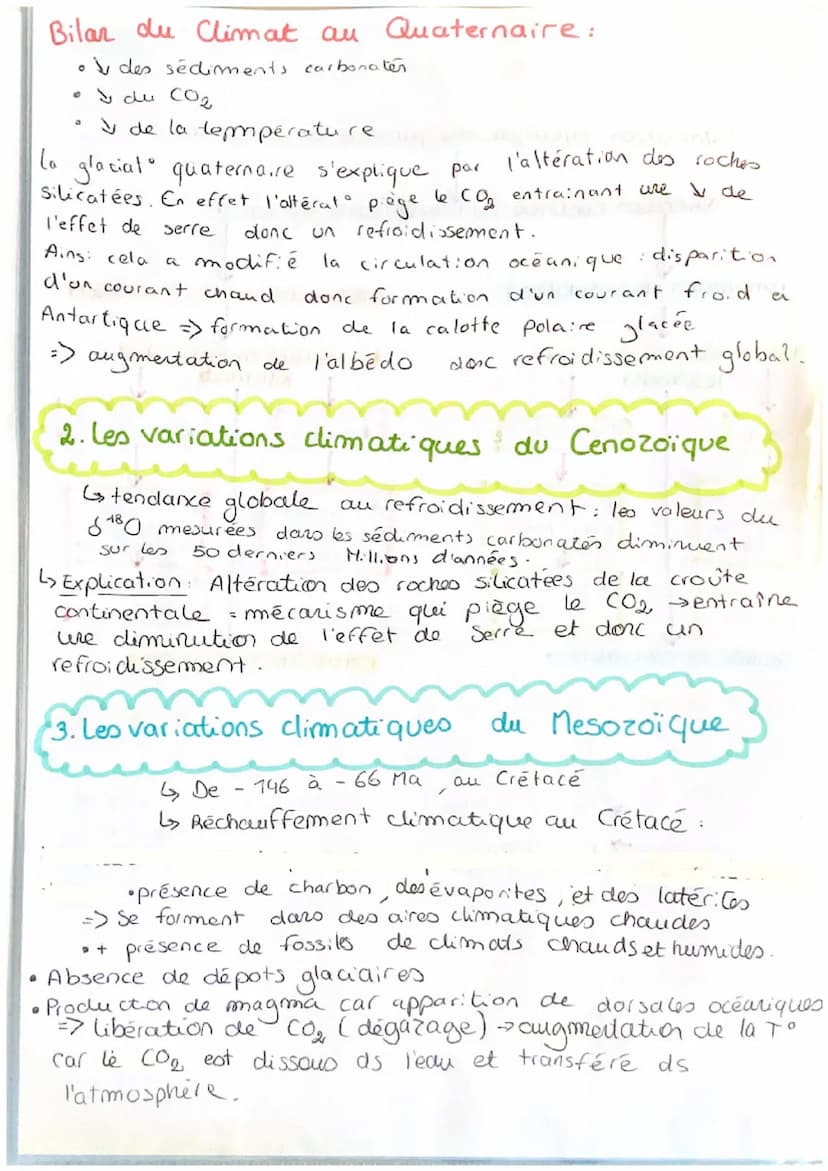 Bilan du Climat au Quaternaire :
• ↘ des sédiments carbonatés
• ↘ du CO₂
• ↘ de la temppérature
La glaciat° quaternaire s'explique par l'altération des roches
silicatées. En effet l'altérat° piège le CO₂ entrainant une ↘ de
l'effet de serre donc un refroidissement.
Ainsi cela a modifié la circulation océanique : disparition
d'un courant chaud donc formation d'un courant froid en
Antartique => formation de la calotte polaire glacée
=> augmentation de l'albédo donc refroidissement global.
2. Les variations climatiques du Cenozoïque
↳ tendance globale au refroidissement : les valeurs du
δ¹⁸O mesurées dans les sédiments carbonatés diminuent
sur les 50 derniers Millions d'années.
↳ Explication : Altération des roches silicatées de la croûte
continentale = mécanisme qui piège le CO₂ → entraîne
une diminution de l'effet de Serre et donc un
refroidissement.
3. Les variations climatiques du Mesozoïque
↳ De - 146 à - 66 Ma, au Crétacé
↳ Réchauffement climatique au Crétacé :
• présence de charbon, des évaporites, et des latérites
=> Se forment dans des aires climatiques chaudes
• + présence de fossiles de climats chauds et humides.
• Absence de dépots glaciaires
• Production de magma car apparition de dorsales océaniques
=> libération de CO₂ (dégazage) → augmentation de la T°
car le CO₂ est dissous ds l'eau et transféré ds
l'atmosphère.